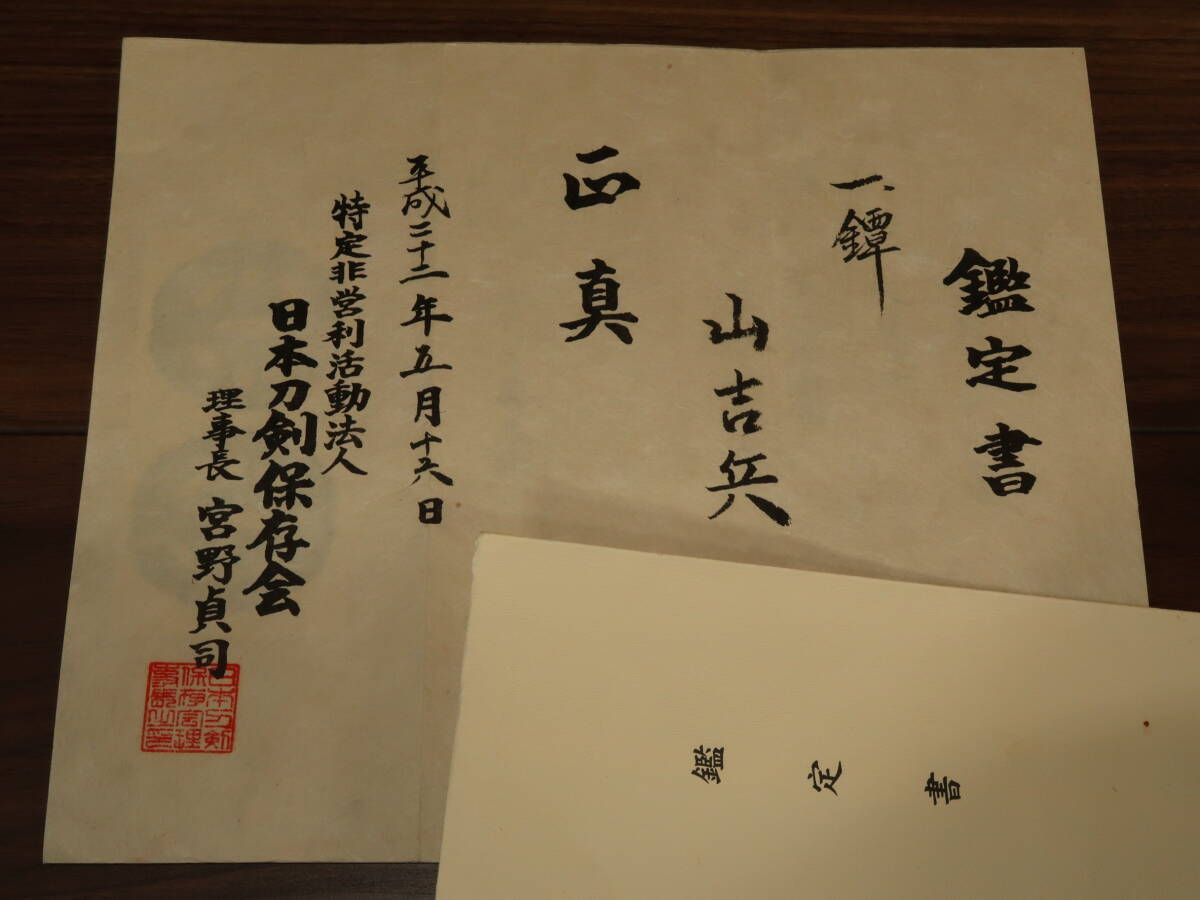 鑑定書
一、鐔
山吉兵
正真
平成二十二年五月十六日
特定非営利活動法人
日本刀剣保存会
理事長 宮野貞司
日本刀剣
保存会理
事長之印
鑑定書